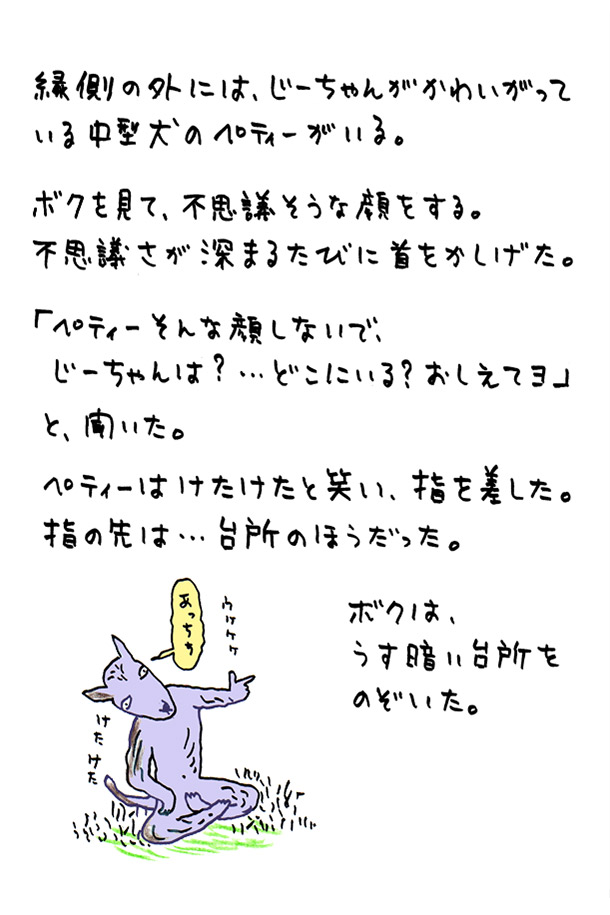 縁側の外には、じーちゃんがかわいがって
いる中型犬のペティーがいる。
ボクを見て、不思議そうな顔をする。
不思議さが深まるたびに首をかしげた。
「ペティーそんな顔しないで、
じーちゃんは？…どこにいる？おしえてヨ」
と、聞いた。
ペティーはけたけたと笑い、指を差した。
指の先は…台所のほうだった。
ボクは、
うす暗い台所を
のぞいた。
あっちち
ウケケケ
けたけた